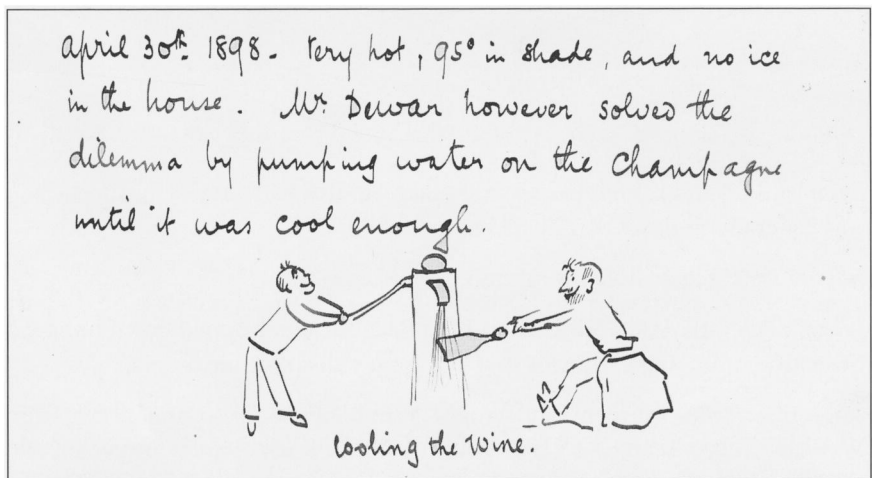 April 30th 1898. Very hot, 95° in shade, and no ice
in the house. Mr. Dewar however solved the
dilemma by pumping water on the Champagne
until it was cool enough.
Cooling the Wine.